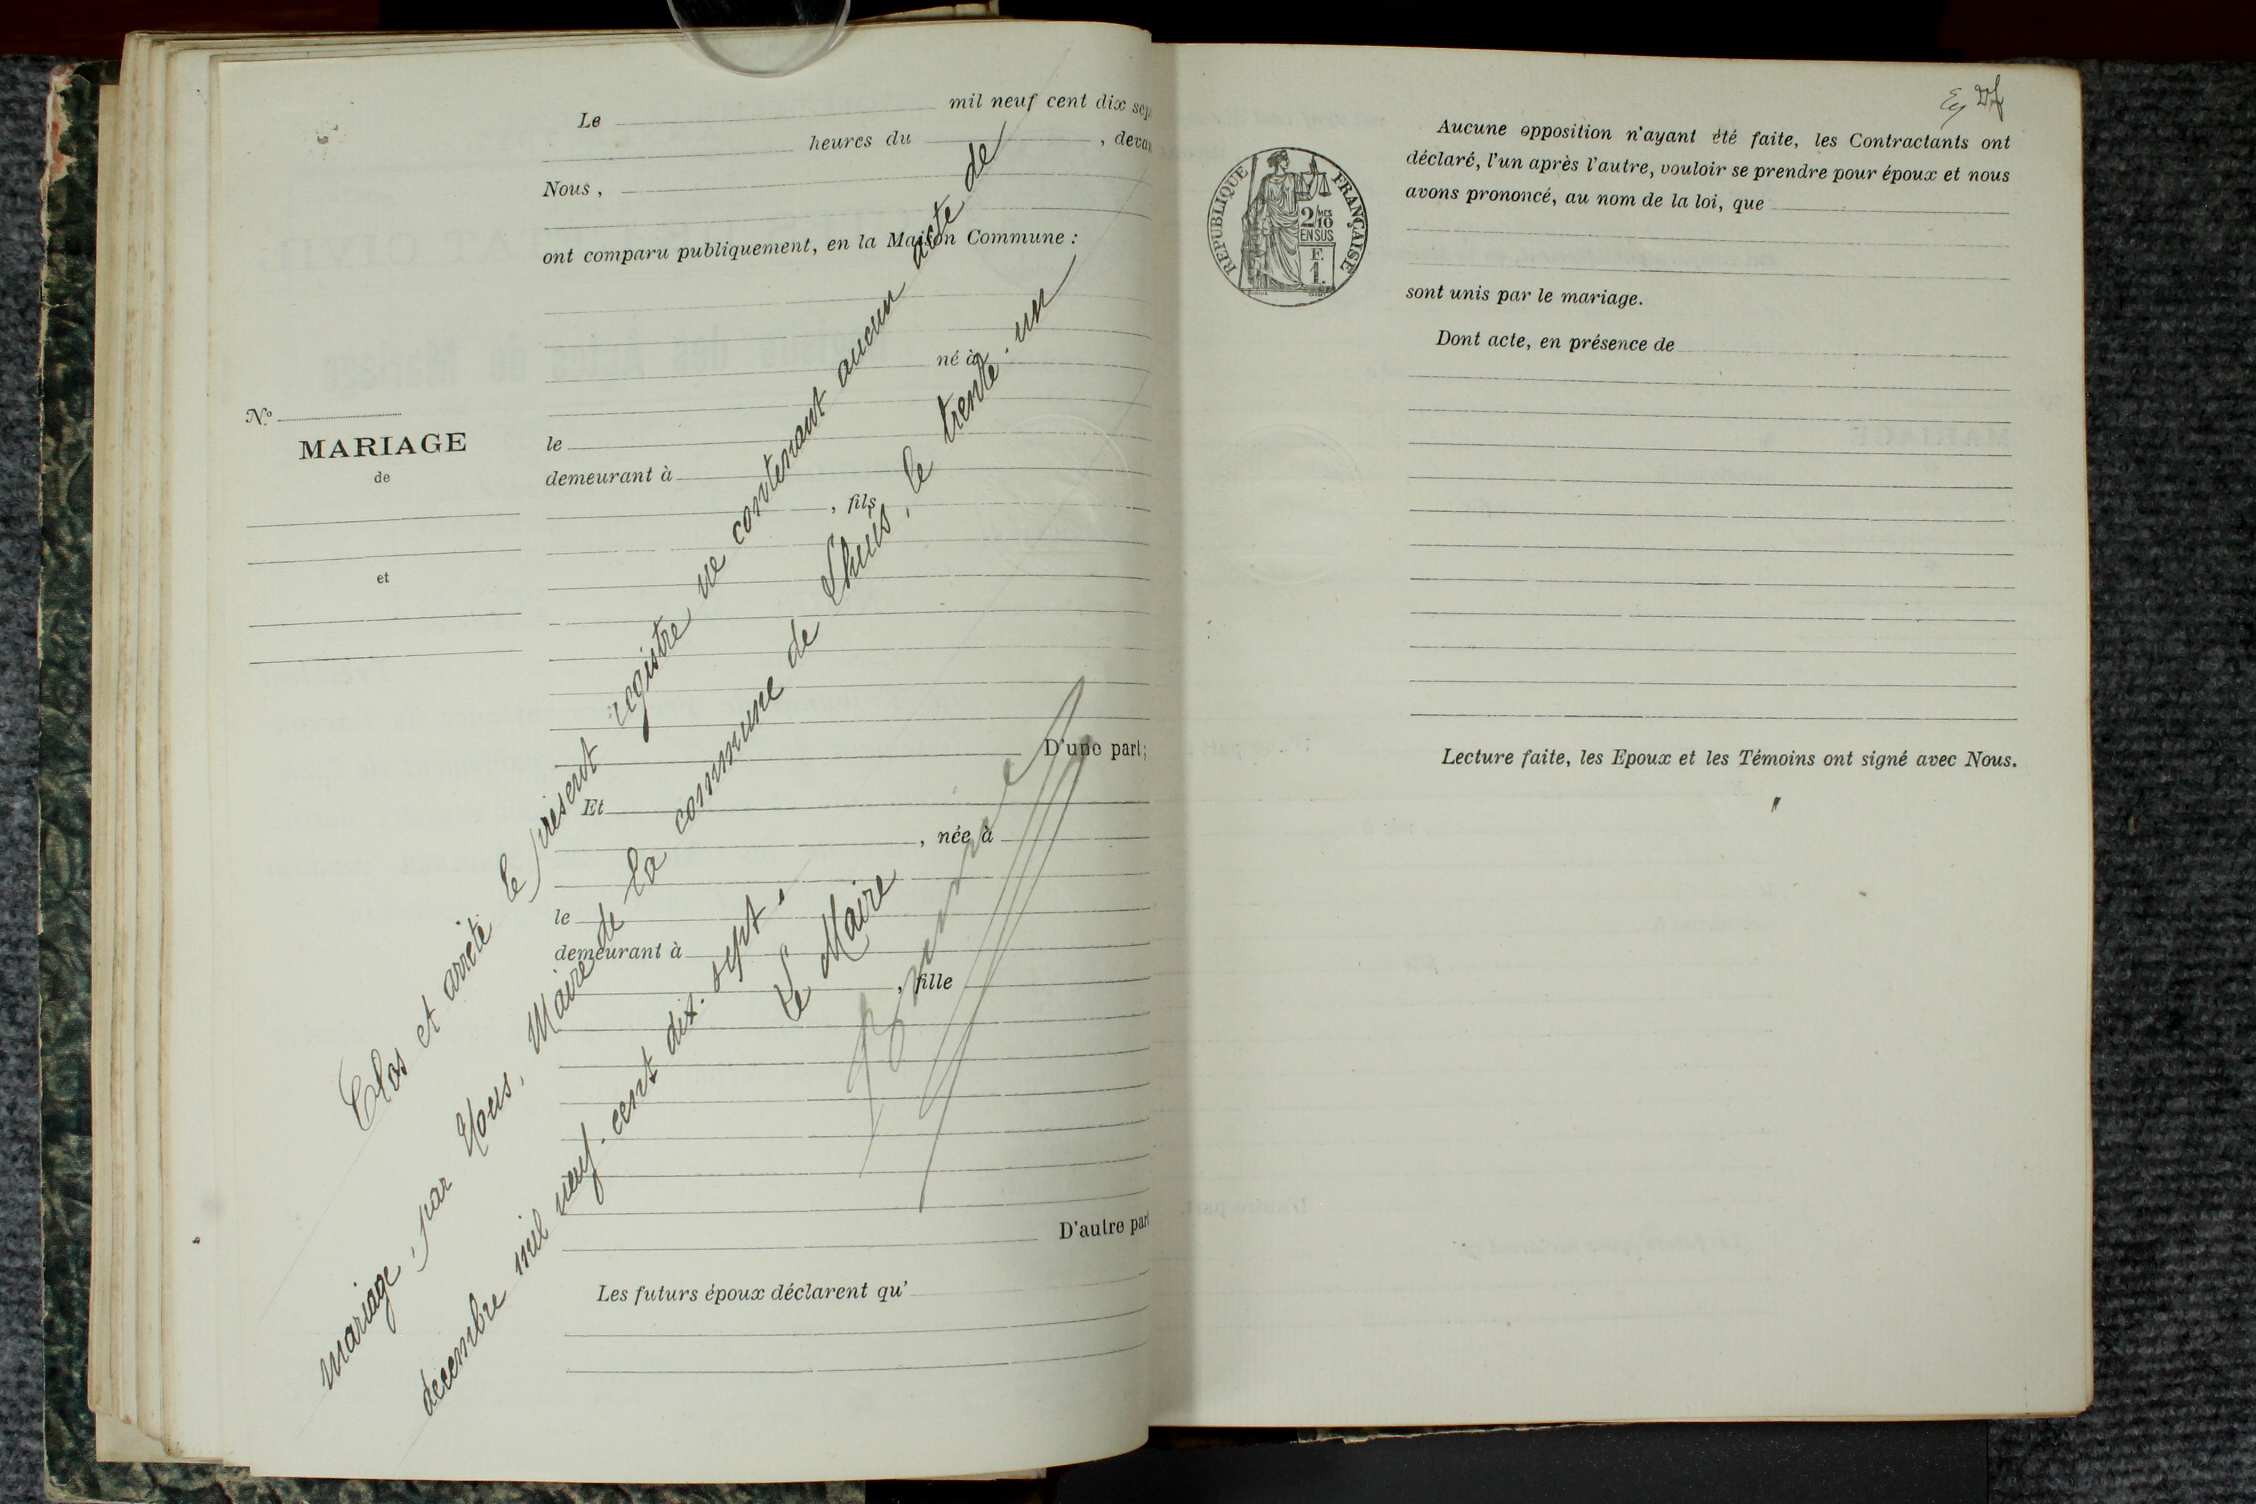 Le mil neuf cent dix sep
heures du , devan
Nous ,
ont comparu publiquement, en la Maison Commune :
né à
le
demeurant à
, fils
D'une part;
Et
, née à
le
demeurant à
, fille
D'autre part
Les futurs époux déclarent qu'
N°
MARIAGE
de
et
Clos et arrêté le présent registre ne contenant aucun acte de
mariage, par Nous, Maire de la commune de le trente-un
décembre mil neuf-cent dix-sept.
Le Maire
RÉPUBLIQUE FRANÇAISE
2/10
MES
EN SUS
F.
1.
Aucune opposition n'ayant été faite, les Contractants ont
déclaré, l'un après l'autre, vouloir se prendre pour époux et nous
avons prononcé, au nom de la loi, que
sont unis par le mariage.
Dont acte, en présence de
Lecture faite, les Epoux et les Témoins ont signé avec Nous.